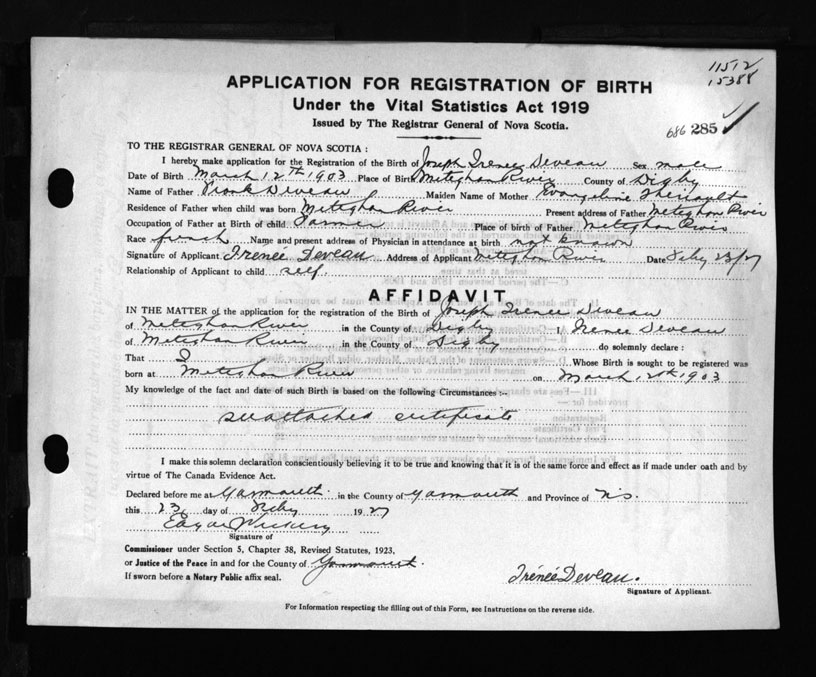 11512
15388
APPLICATION FOR REGISTRATION OF BIRTH
Under the Vital Statistics Act 1919
Issued by The Registrar General of Nova Scotia.
686 285
TO THE REGISTRAR GENERAL OF NOVA SCOTIA :
I hereby make application for the Registration of the Birth of Joseph Irenee Deveau Sex male
Date of Birth March 12th 1903 Place of Birth Meteghan River County of Digby
Name of Father Frank Deveau Maiden Name of Mother Evangeline Theriault
Residence of Father when child was born Meteghan River Present address of Father Meteghan River
Occupation of Father at Birth of child Farmer Place of birth of Father Meteghan River
Race french Name and present address of Physician in attendance at birth not known
Signature of Applicant Irenée Deveau Address of Applicant Meteghan River Date Feby 23/27
Relationship of Applicant to child self.
AFFIDAVIT
IN THE MATTER of the application for the registration of the Birth of Joseph Irenee Deveau
of Meteghan River in the County of Digby I, Irenee Deveau
of Meteghan River in the County of Digby do solemnly declare :
That I Whose Birth is sought to be registered was
born at Meteghan River on March 12th 1903
My knowledge of the fact and date of such Birth is based on the following Circumstances :-
see attached certificate
I make this solemn declaration conscientiously believing it to be true and knowing that it is of the same force and effect as if made under oath and by
virtue of The Canada Evidence Act.
Declared before me at Yarmouth in the County of Yarmouth and Province of N.S.
this 23 day of Feby 1927
Edgar
Signature of
Commissioner under Section 5, Chapter 38, Revised Statutes, 1923,
or Justice of the Peace in and for the County of Yarmouth.
If sworn before a Notary Public affix seal.
Irénée Deveau.
Signature of Applicant.
For Information respecting the filling out of this Form, see Instructions on the reverse side.